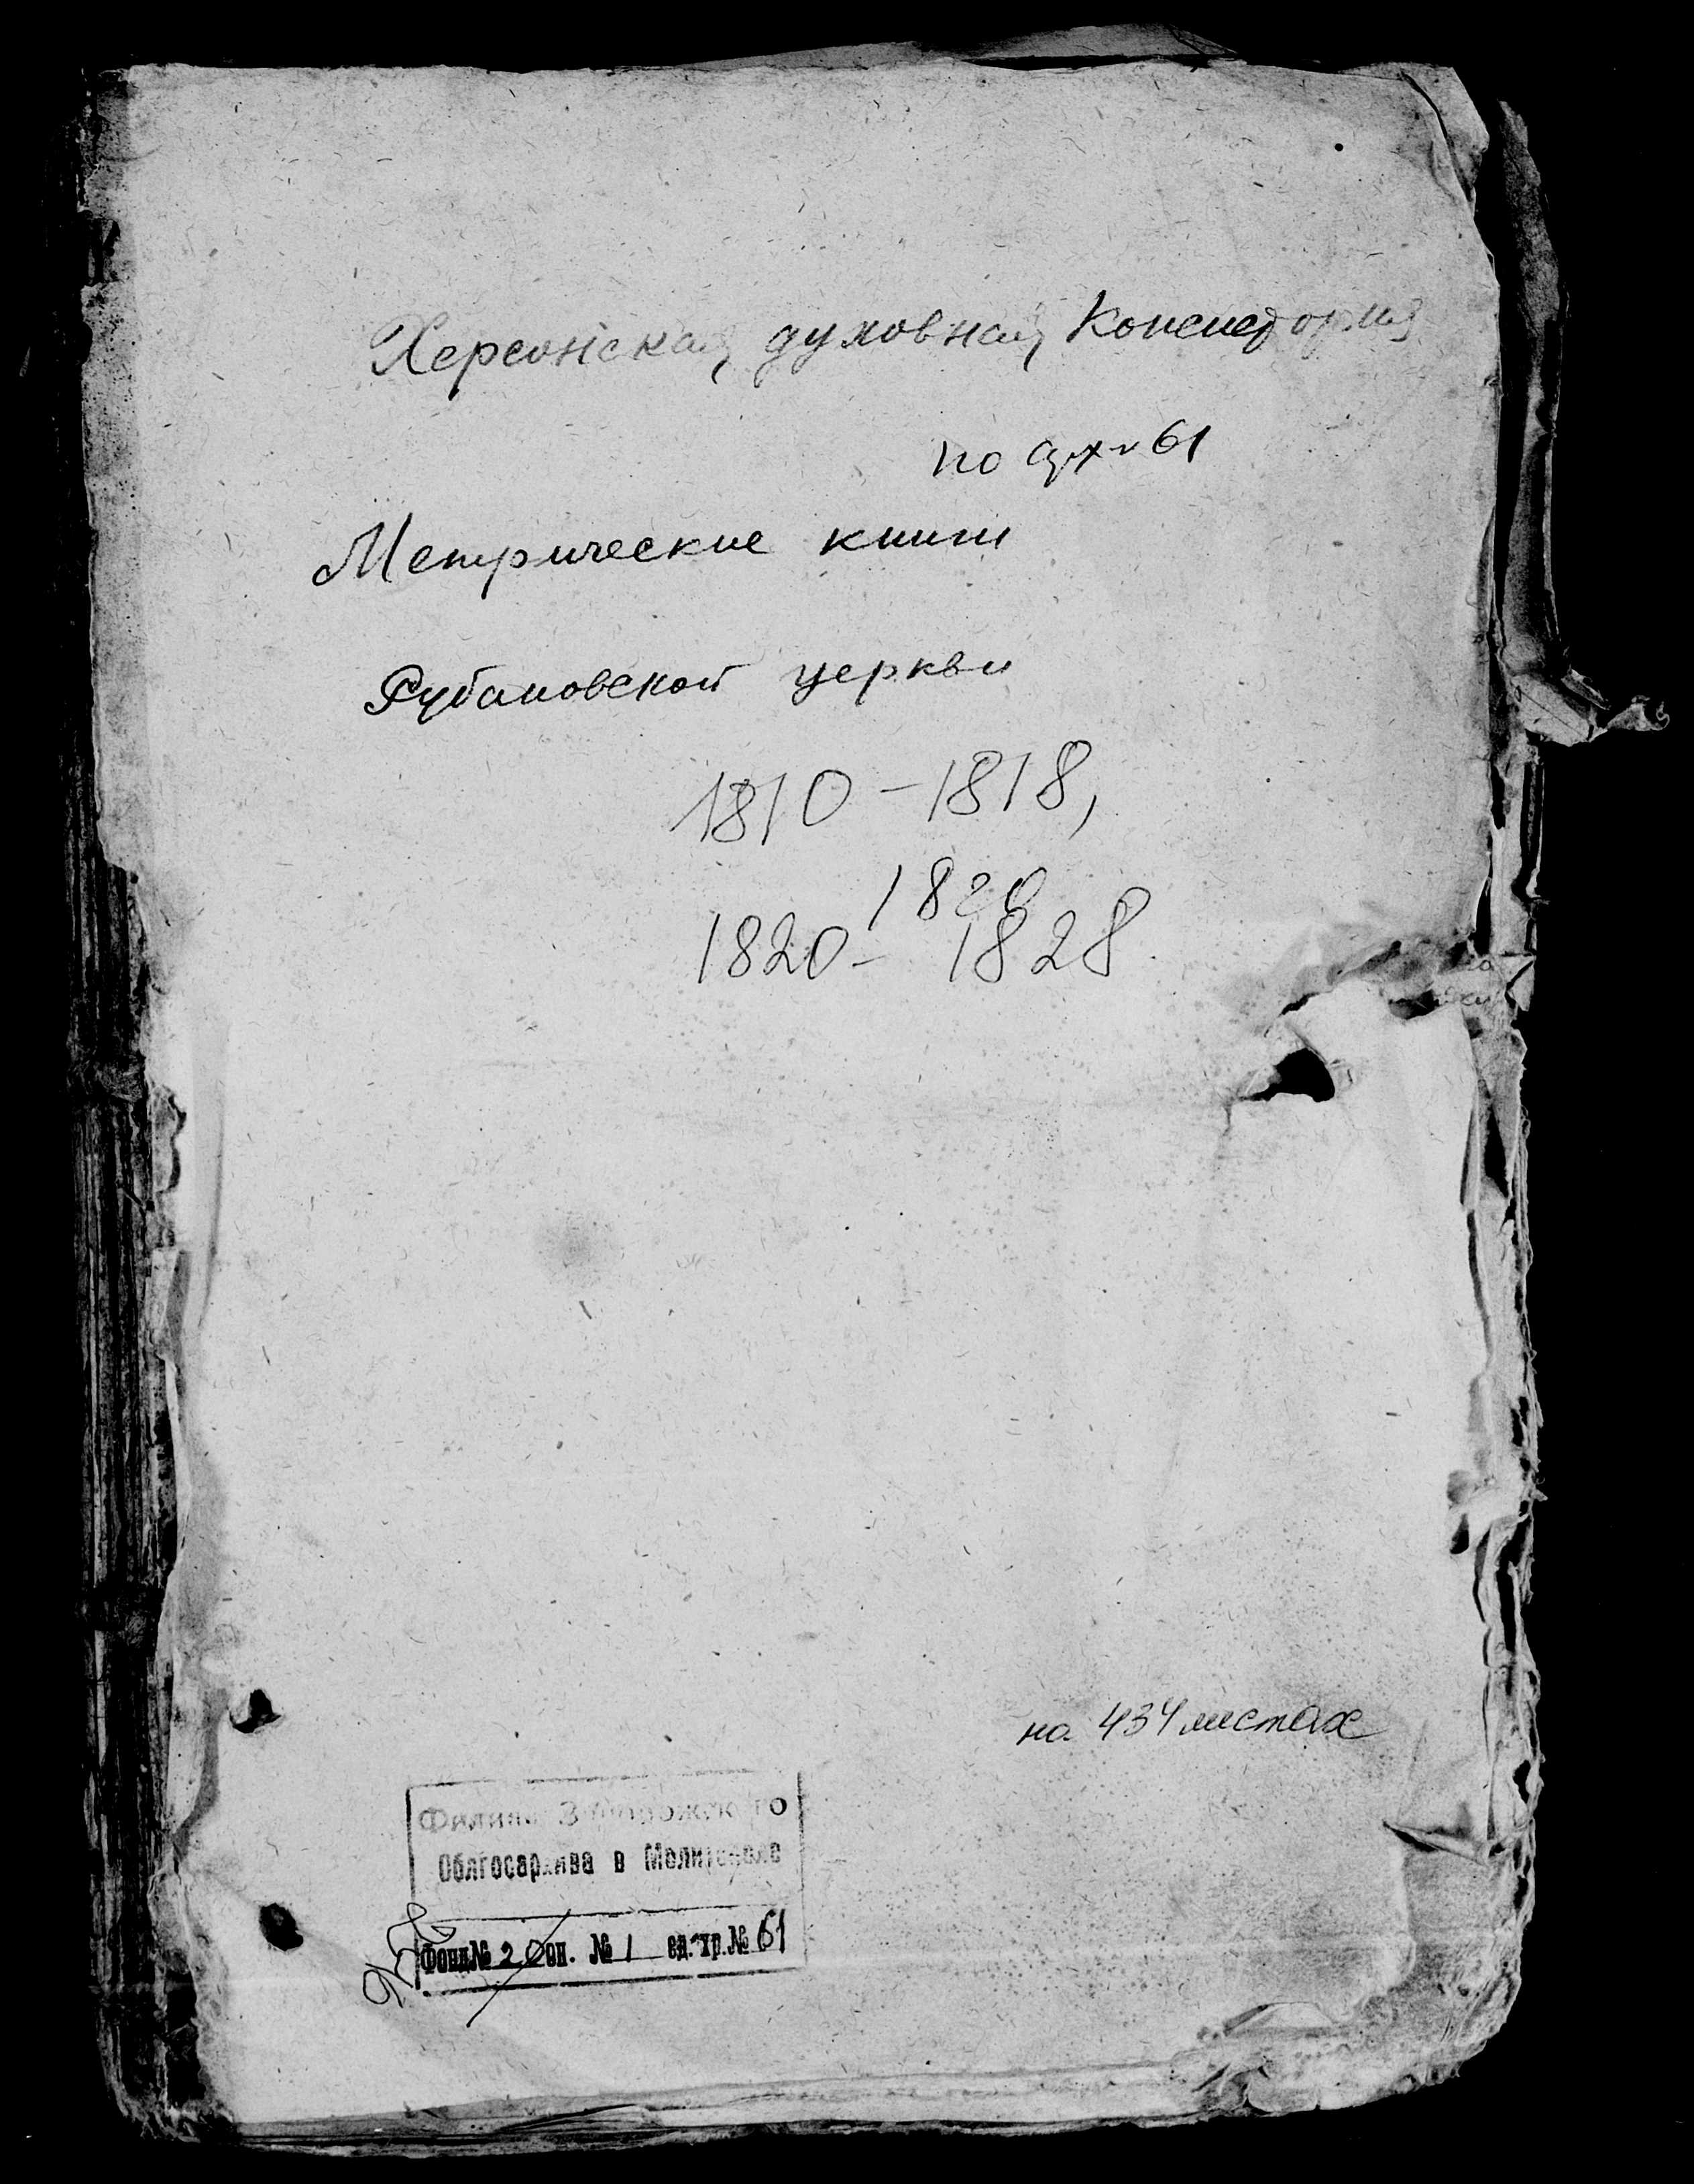 Херсонская духовная Консистория
по арх № 61
Метрические книги
Рубановской церкви
1810 – 1818,
1820
1820 – 1828
на 434 листах
Филиал Запорожского
Облгосархива в Мелитополе
Фонд № 20 оп. № 1 ед. хр. № 61